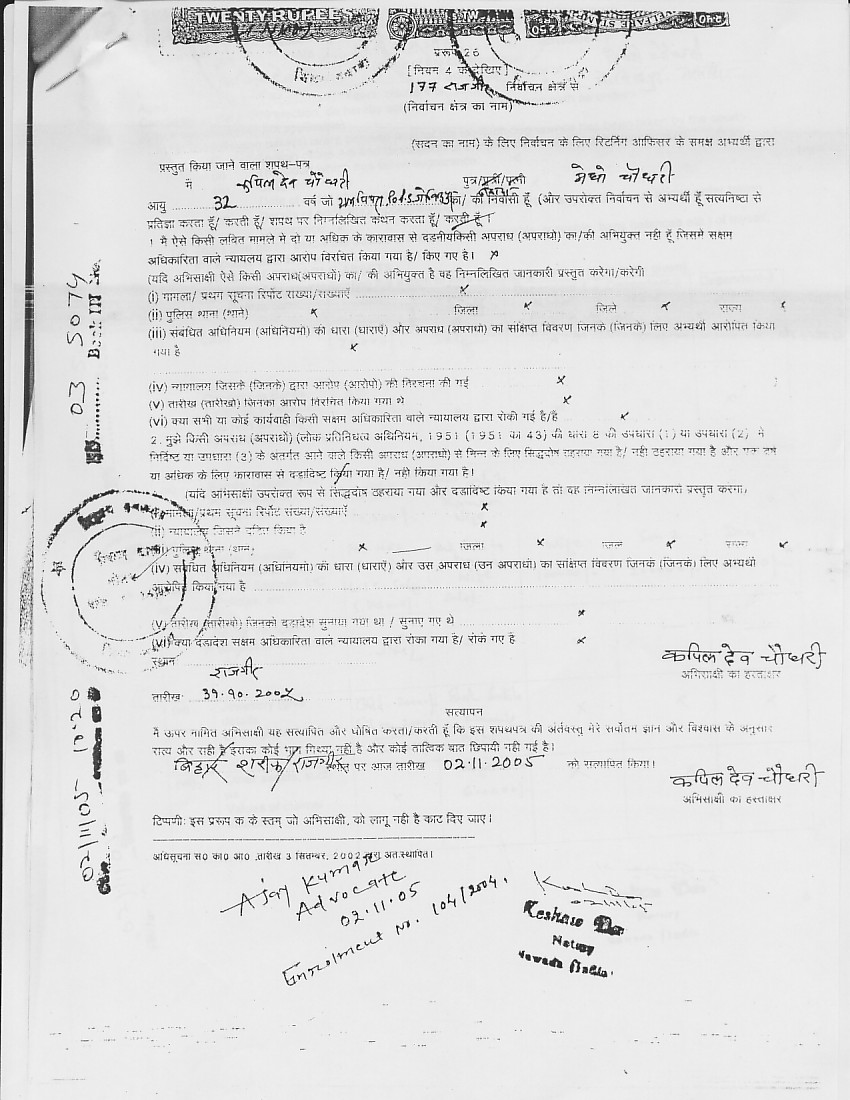 TWENTY RUPEES
प्ररूप 26
[नियम 4 क देखिए]
177 राजगीर निर्वाचन क्षेत्र से
(निर्वाचन क्षेत्र का नाम)
(सदन का नाम) के लिए निर्वाचन के लिए रिटर्निंग आफिसर के समक्ष अभ्यर्थी द्वारा
प्रस्तुत किया जाने वाला शपथ-पत्र
मै कपिल देव चौधरी पुत्र/पुत्री/पत्नी मेधो चौधरी
आयु 32 वर्ष जो का/ की निवासी हूँ (और उपरोक्त निर्वाचन से अभ्यर्थी हूँ सत्यनिष्टा से
प्रतिज्ञा करता हूँ/ करती हूँ/ शपथ पर निम्नलिखित कथन करता हूँ/ करती हूँ।
1 मै ऐसे किसी लंबित मामले मे दो या अधिक के कारावास से दडनीयकिसी अपराध (अपराधो) का/की अभियुक्त नही हूँ जिसमे सक्षम
अधिकारिता वाले न्यायलय द्वारा आरोप विरचित किया गया है/ किए गए है। x
(यदि अभिसाक्षी ऐसे किसी अपराध(अपराधों) का/ की अभियुक्त है वह निम्नलिखित जानकारी प्रस्तुत करेगा/करेगी
(i) मामला/ प्रथम सूचना रिपोर्ट संख्या/संख्याएँ x
(ii) पुलिस थाना (थाने) x जिला x जिले x राज्य
(iii) संबंधित अधिनियम (अधिनियमो) की धारा (धाराएँ) और अपराध (अपराधो) का संक्षिप्त विवरण जिनके (जिनके) लिए अभ्यर्थी आरोपित किया
गया है x
(iv) न्यायालय जिसके (जिनके) द्वारा आरोप (आरोपो) की विरचना की गई x
(v) तारीख (तारीखो) जिनका आरोप विरचित किया गया थे x
(vi) क्या सभी या कोई कार्यवाही किसी सक्षम अधिकारिता वाले न्यायालय द्वारा रोकी गई है/है x
2. मुझे किसी अपराध (अपराधों) (लोक प्रतिनिधित्व अधिनियम, 1951 (1951 का 43) की धारा 8 की उपधारा (1) या उपधारा (2) मे
निर्दिष्ट या उपधारा (3) के अंतर्गत आने वाले किसी अपराध (अपराधो) से भिन्न के लिए सिद्धदोष ठहराया गया है/ नही ठहराया गया है और एक वर्ष
या अधिक के लिए कारावास से दडादिष्ट किया गया है/ नही किया गया है।
(यदि अभिसाक्षी उपरोक्त रूप से सिद्धदोष ठहराया गया और दडादिष्ट किया गया है तो वह निम्नलिखित जानकारी प्रस्तुत करेगा)
(i) मामला/प्रथम सूचना रिपोर्ट संख्या/संख्याएँ x
(ii) न्यायालय जिसने दंडित किया है x
(iii) पुलिस थाना (थाने) x जिला x जिले x राज्य
(iv) संबंधित अधिनियम (अधिनियमो) की धारा (धाराएँ) और उस अपराध (उन अपराधो) का संक्षिप्त विवरण जिनके (जिनके) लिए अभ्यर्थी
आरोपित किया गया है
(v) तारीख (तारीखो) जिनको दडादेश सुनाया गया था / सुनाए गए थे x
(vi) क्या दंडादेश सक्षम अधिकारिता वाले न्यायालय द्वारा रोका गया है/ रोके गए है x
स्थान राजगीर
कपिल देव चौधरी
अभिसाक्षी का हस्ताक्षर
तारीख 31.10.2005
सत्यापन
मै ऊपर नामित अभिसाक्षी यह सत्यापित और घोषित करता/करती हूँ कि इस शपथपत्र की अंर्तवस्तु मेरे सर्वोतम ज्ञान और विश्वास के अनुसार
सत्य और सही है इसका कोई भाग मिथ्या नही है और कोई तात्विक बात छिपायी नही गई है।
बिहार शरीफ/राजगीर स्थान पर आज तारीख 02.11.2005 को सत्यापित किया।
कपिल देव चौधरी
अभिसाक्षी का हस्ताक्षर
टिप्पणी: इस प्ररूप क के स्तम् जो अभिसाक्षी, को लागू नही है काट दिए जाए।
अधिसूचना स0 का0 आ0 तारीख 3 सितम्बर, 2002 द्वारा अत.स्थापित।
Ajay Kumar
Advocate
02.11.05
Enrolment No. 104/2004.
02/11/05
Keshao
Notary
Nawada
03 5074
Book III
02/11/05